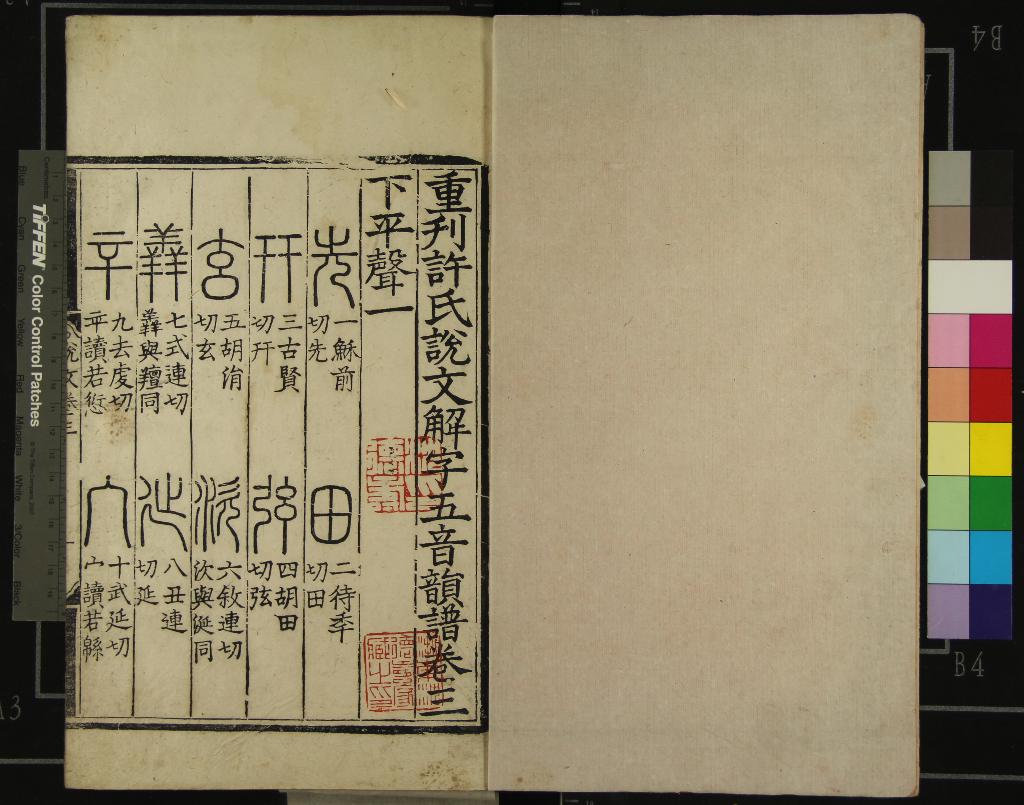 重刋許氏說文解字五音韻譜卷三
下平聲一
先 一穌前切先 田 二待秊切田
幵 三古賢切幵 弦 四胡田切弦
玄 五胡涓切玄 㳄 六敘連切㳄與涎同
羴 七式連切羴與羶同 延 八丑連切延
䇂 九去虔切䇂讀若愆 宀 十武延切宀讀若緜
說文卷三
TIFFEN Color Control Patches
Blue Cyan Green Yellow Red Magenta White 3/Color Black
B4
B4
A3